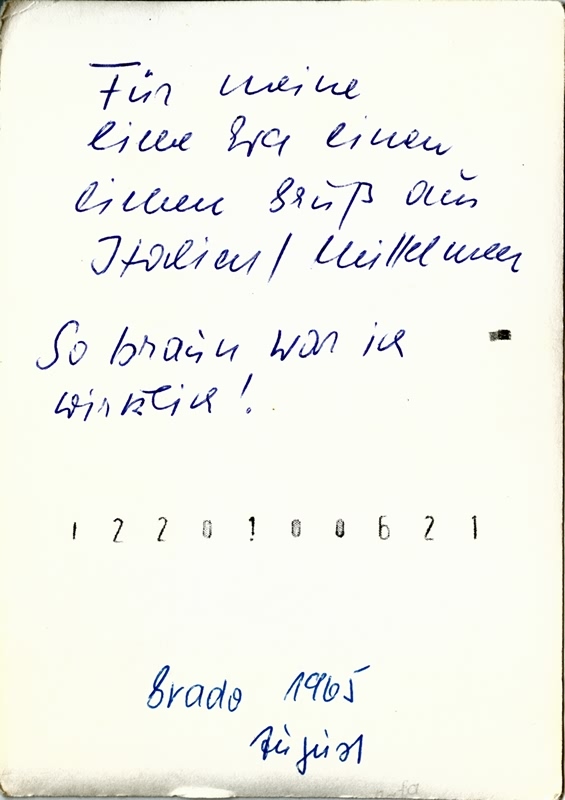 Für meine
liebe Eva einen
lieben Gruß aus
Italien / Mittelmeer
So braun war ich
wirklich!
1220100621
Grado 1965
August